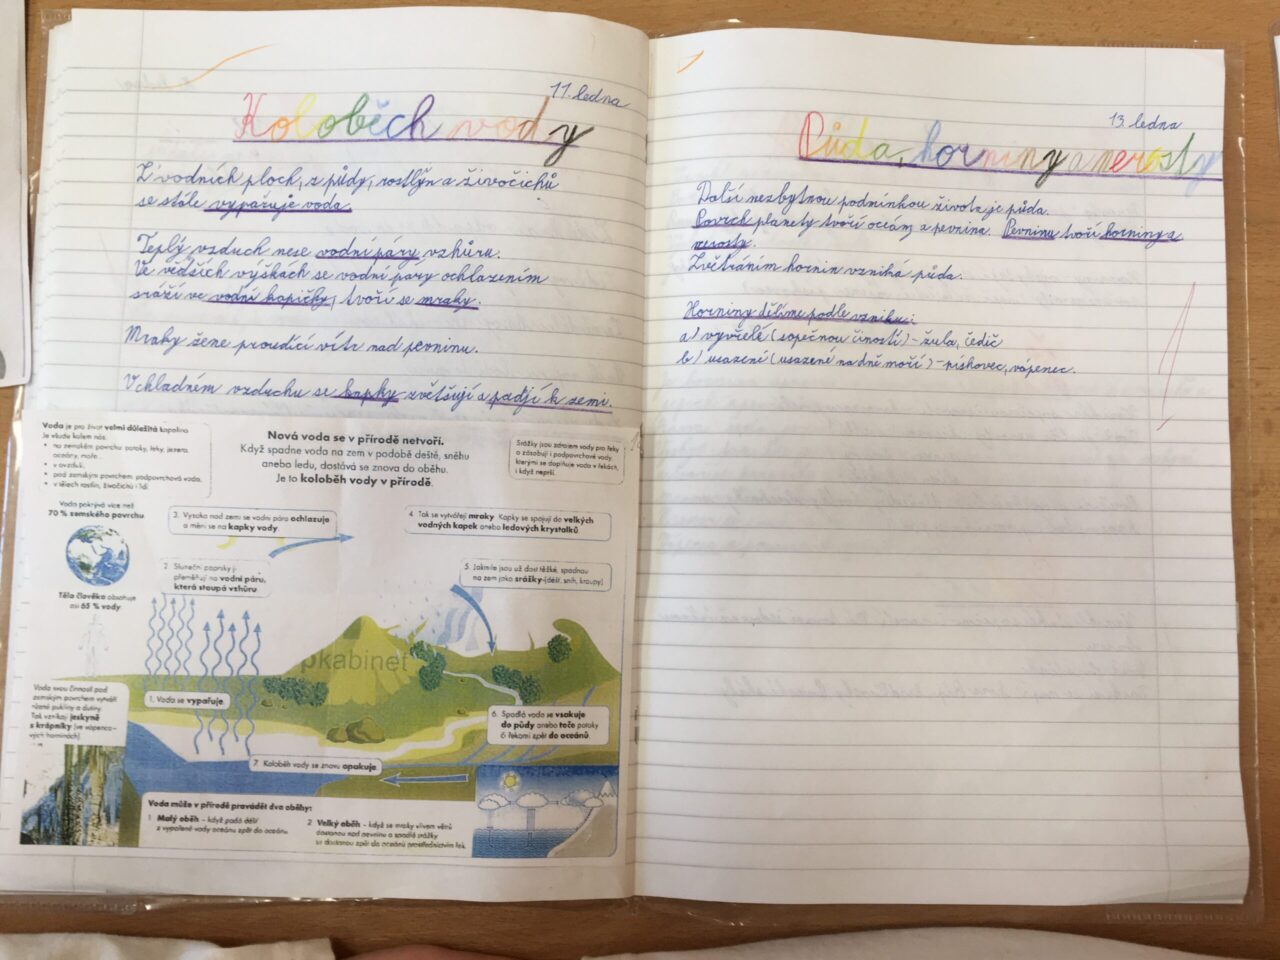 11. ledna
Koloběch vody
Z vodních ploch, z půdy, rostlyn a živočichů
se stále vypařuje voda.
Teplý vzduch nese vodní páry vzhůru.
Ve věčších výškách se vodní páry ochlazením
sráží ve vodní kapičky, tvoří se mraky.
Mraky žene proudící vítr nad pevninu.
V chladném vzduchu se kapky zvětšují a padjí k zemi.
Voda je pro život velmi důležitá kapalina.
Je všude kolem nás:
• na zemském povrchu potoky, řeky, jezera,
oceány, moře
• v ovzduší,
• pod zemským povrchem: podpovrchová voda,
• v tělech rostlin, živočichů i lidí.
Nová voda se v přírodě netvoří.
Když spadne voda na zem v podobě deště, sněhu
anebo ledu, dostává se znova do oběhu.
Je to koloběh vody v přírodě.
Srážky jsou zdrojem vody pro řeky
a zásobují i podpovrchové vody,
kterými se doplňuje voda v řekách,
i když neprší.
Voda pokrývá více než
70 % zemského povrchu.
3. Vysoko nad zemí se vodní pára ochlazuje
a mění se na kapky vody.
4. Tak se vytvářejí mraky. Kapky se spojují do velkých
vodných kapek anebo ledových krystalků.
2. Sluneční paprsky ji
přeměňují na vodní páru,
která stoupá vzhůru.
5. Jakmile jsou už dost těžké, spadnou
na zem jako srážky (déšť, sníh, kroupy).
Tělo člověka obsahuje
asi 65 % vody.
pkabinet
Voda svou činností pod
zemským povrchem vytváří
různé pukliny a dutiny.
Tak vznikají jeskyně
s krápníky (ve vápenco-
vých horninách).
1. Voda se vypařuje.
6. Spadlá voda se vsakuje
do půdy anebo teče potoky
či řekami zpět do oceánu.
7. Koloběh vody se znovu opakuje.
Voda může v přírodě provádět dva oběhy:
1 Malý oběh – když padá déšť
z vypařené vody oceánu zpět do oceánu.
2 Velký oběh – když se mraky vlivem větrů
dostanou nad pevninu a spadlé srážky
se dostanou zpět do oceánů prostřednictvím řek.
13. ledna
Půda, horniny a nerosty
Další nezbytnou podmínkou života je půda.
Povrch planety tvoří oceán a pevnina. Pevninu tvoří horniny a
nerosty.
Zvětráním hornin vzniká půda.
Horniny dělíme podle vzniku:
a) vyvřelé (sopečnou čiností) - žula, čedič
b) usazené (usazené na dně moří) - pískovec, vápenec.